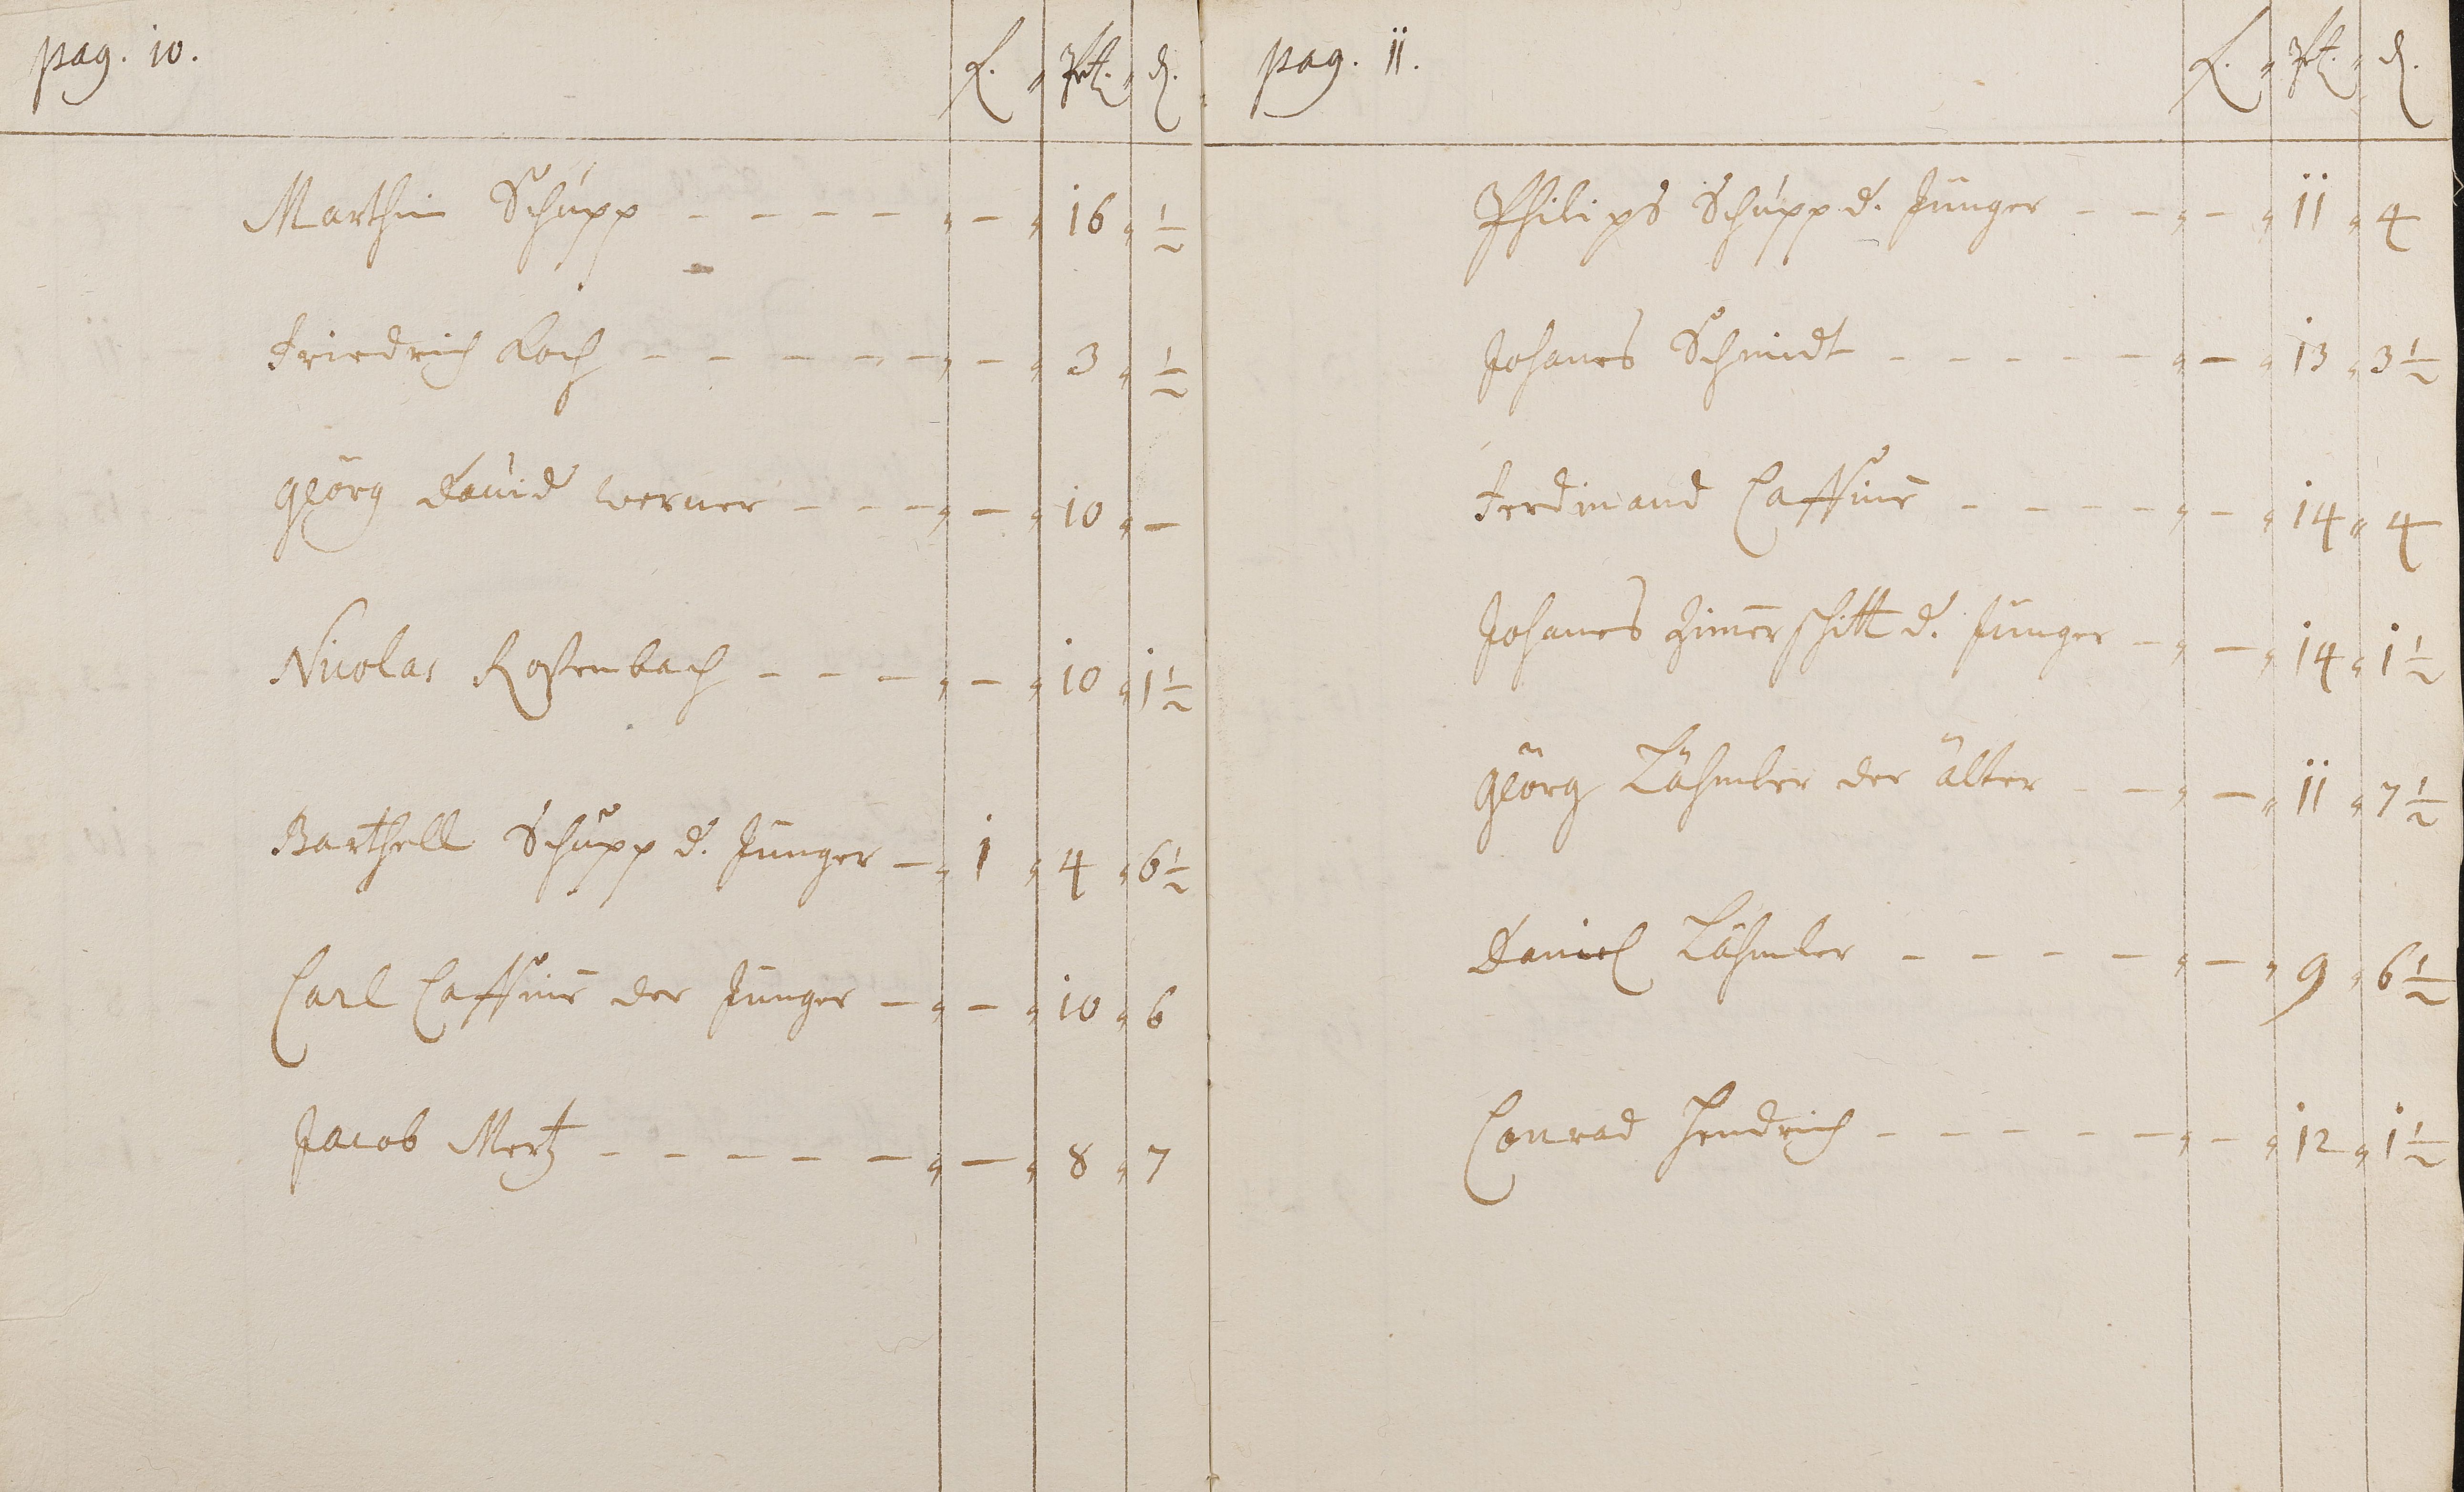 pag. 10.
f. " Xt. " d.
Marthin Schupp - - - - " - " 16 " 1/2
Friedrich Koch - - - - - " - " 3 " 1/2
Geörg David Werner - - - " - " 10 " -
Nicolas Rossenbach - - - " - " 10 " 1 1/2
Barthell Schupp d. Junger - " 1 " 4 " 6 1/2
Carl der Junger - " - " 10 " 6
Jacob Mertz - - - - - " - " 8 " 7
pag. 11.
f. " Xt. " d.
Philips Schupp d. Junger - - " - " 11 " 4
Johanes Schmidt - - - - - " - " 13 " 3 1/2
Ferdinand - - - - " - " 14 " 4
Johanes d. Junger - " - " 14 " 1 1/2
Geörg Lähmler der älter - - " - " 11 " 7 1/2
Daniel Lähmler - - - - " - " 9 " 6 1/2
Conrad Hendrich - - - - - " - " 12 " 1 1/2